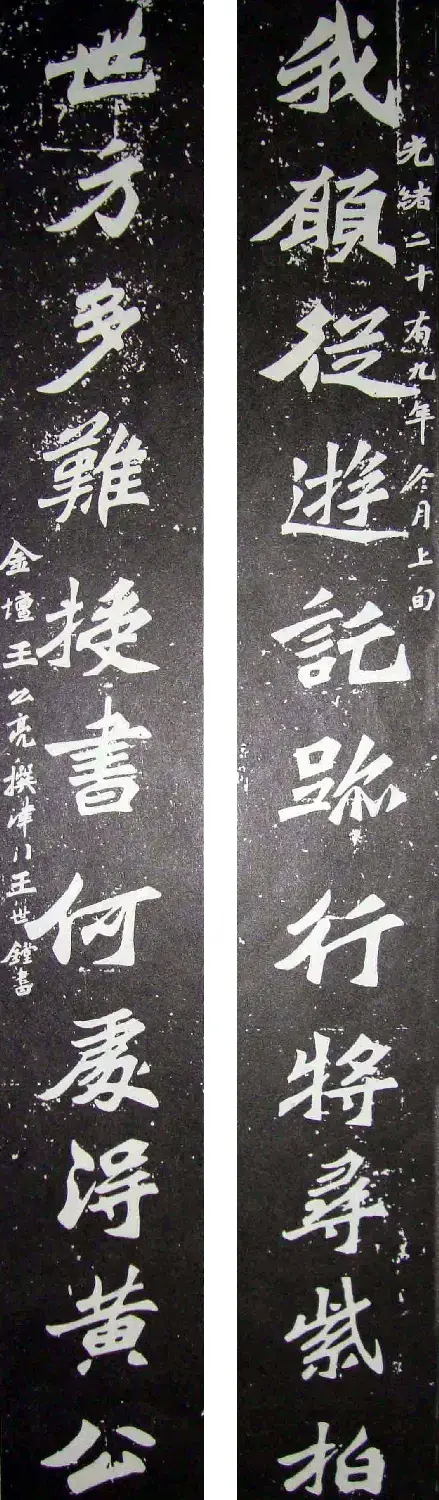 光緒二十有九年冬月上旬
我願從遊託跡行將尋紫柏
世方多難授書何處得黄公
金壇王公亮撰津门王世鏜書